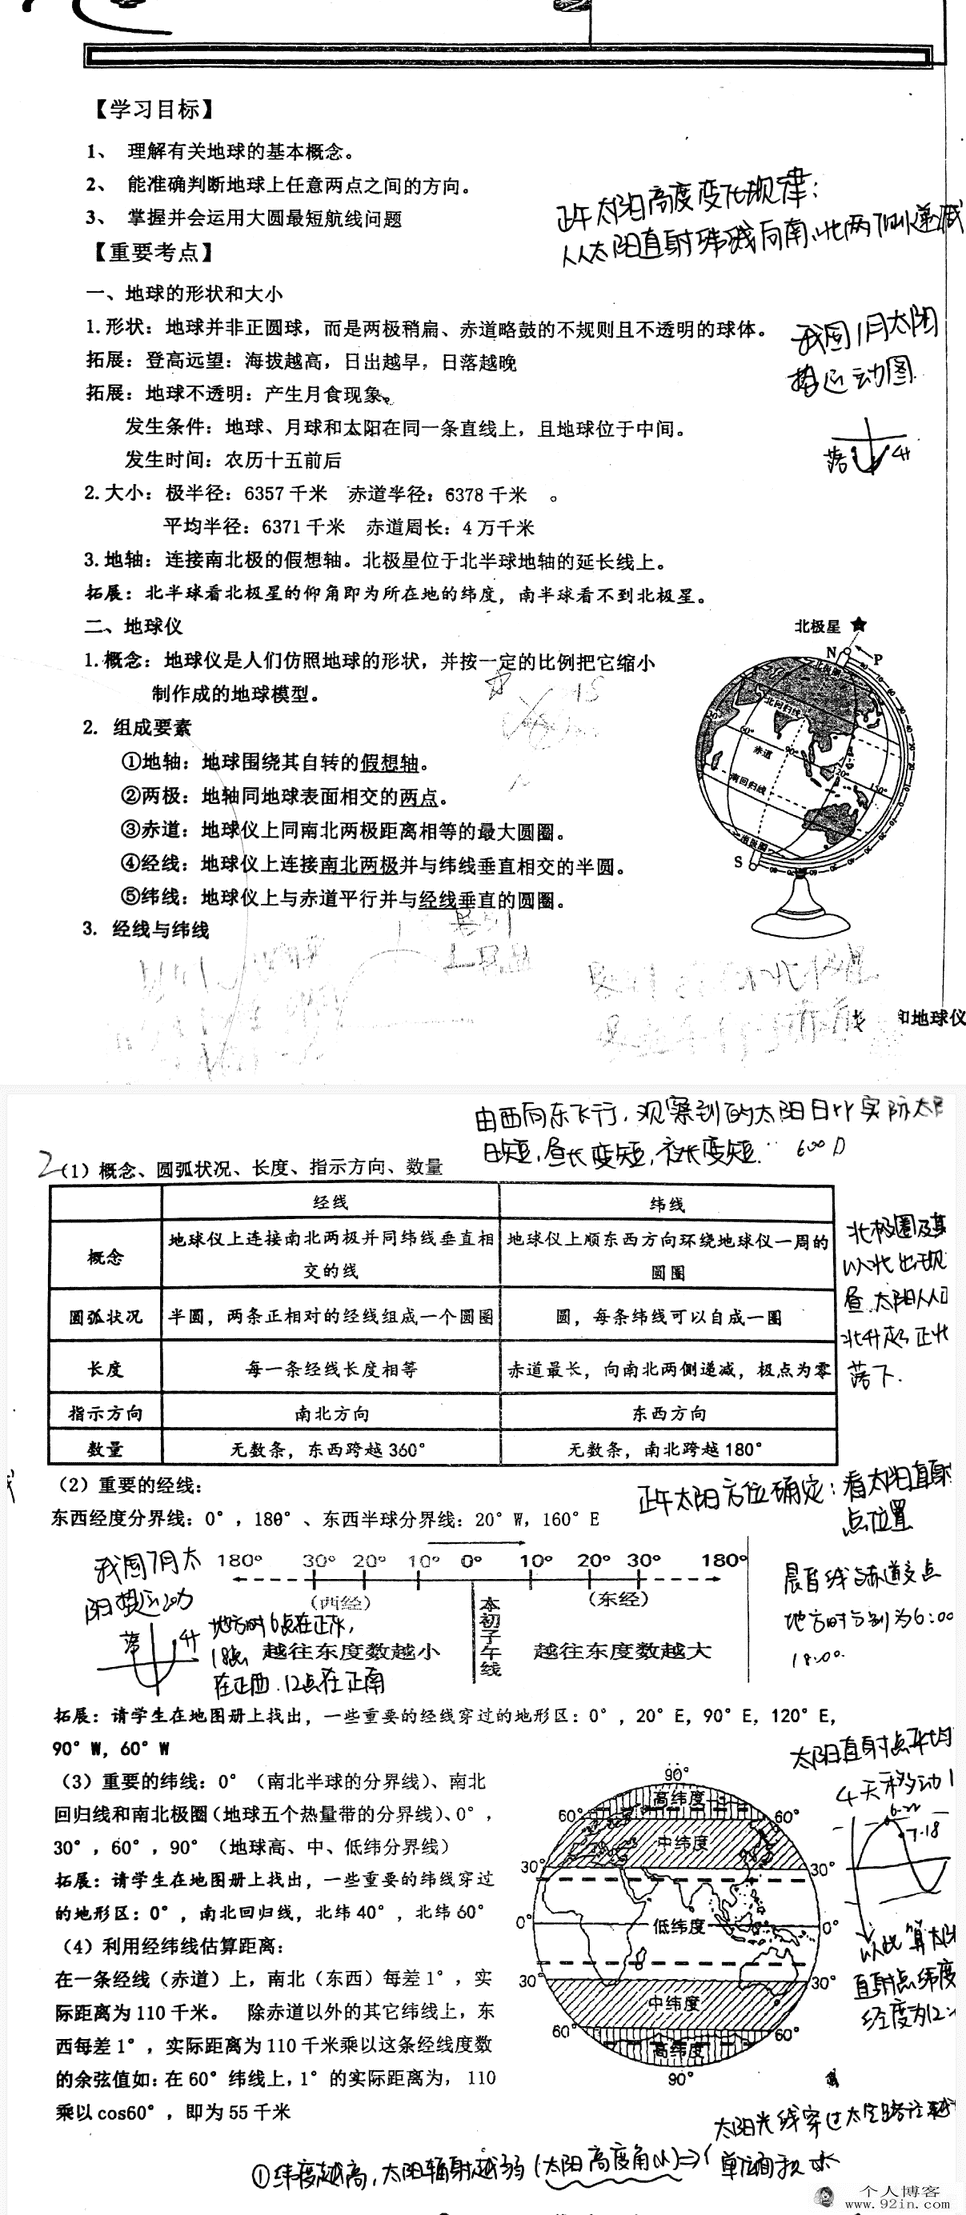 【学习目标】
1、 理解有关地球的基本概念。
2、 能准确判断地球上任意两点之间的方向。
3、 掌握并会运用大圆最短航线问题
正午太阳高度变化规律：
从太阳直射纬线向南、北两侧递减
【重要考点】
一、地球的形状和大小
1.形状：地球并非正圆球，而是两极稍扁、赤道略鼓的不规则且不透明的球体。
拓展：登高远望：海拔越高，日出越早，日落越晚
拓展：地球不透明：产生月食现象。
发生条件：地球、月球和太阳在同一条直线上，且地球位于中间。
发生时间：农历十五前后
我国1月太阳
视运动图
落 升
2.大小：极半径：6357千米 赤道半径：6378千米 。
平均半径：6371千米 赤道周长：4万千米
3.地轴：连接南北极的假想轴。北极星位于北半球地轴的延长线上。
拓展：北半球看北极星的仰角即为所在地的纬度，南半球看不到北极星。
二、地球仪
1.概念：地球仪是人们仿照地球的形状，并按一定的比例把它缩小
制作成的地球模型。
2. 组成要素
①地轴：地球围绕其自转的假想轴。
②两极：地轴同地球表面相交的两点。
③赤道：地球仪上同南北两极距离相等的最大圆圈。
④经线：地球仪上连接南北两极并与纬线垂直相交的半圆。
⑤纬线：地球仪上与赤道平行并与经线垂直的圆圈。
3. 经线与纬线
北极星
N P
北回归线
赤道
南回归线
S
和地球仪
由西向东飞行，观察到的太阳日比实际太阳
日短，昼长变短，夜长变短
2（1）概念、圆弧状况、长度、指示方向、数量
经线 纬线
概念 地球仪上连接南北两极并同纬线垂直相交的线 地球仪上顺东西方向环绕地球仪一周的圆圈
圆弧状况 半圆，两条正相对的经线组成一个圆圈 圆，每条纬线可以自成一圈
长度 每一条经线长度相等 赤道最长，向南北两侧递减，极点为零
指示方向 南北方向 东西方向
数量 无数条，东西跨越360° 无数条，南北跨越180°
北极圈及其
以北出现
昼，太阳从
北升起 正北
落下.
（2）重要的经线：
东西经度分界线：0°，180°、东西半球分界线：20°W，160°E
正午太阳方位确定：看太阳直射
点位置
180° 30° 20° 10° 0° 10° 20° 30° 180°
（西经） 本初子午线 （东经）
越往东度数越小 越往东度数越大
我国7月太
阳视运动
落 升
地方时6点在正东，
18点
在正西，12点在正南
晨昏线与赤道交点
地方时分别为6:00
18:00.
拓展：请学生在地图册上找出，一些重要的经线穿过的地形区：0°，20°E，90°E，120°E，
90°W，60°W
（3）重要的纬线：0°（南北半球的分界线）、南北
回归线和南北极圈（地球五个热量带的分界线）、0°，
30°，60°，90°（地球高、中、低纬分界线）
拓展：请学生在地图册上找出，一些重要的纬线穿过
的地形区：0°，南北回归线，北纬40°，北纬60°
（4）利用经纬线估算距离：
在一条经线（赤道）上，南北（东西）每差1°，实
际距离为110千米。 除赤道以外的其它纬线上，东
西每差1°，实际距离为110千米乘以这条经线度数
的余弦值如：在60°纬线上，1°的实际距离为， 110
乘以cos60°，即为55千米
90°
高纬度
60° 60°
中纬度
30° 30°
0° 低纬度 0°
30° 30°
中纬度
60° 60°
高纬度
90°
太阳直射点平均
4天移动1
6.22
7.18
以此算太阳
直射点纬度
经度为12
太阳光线穿过大气路径越
①纬度越高，太阳辐射越弱（太阳高度角小）⇒（ 单位面积
个人博客
www.92in.com